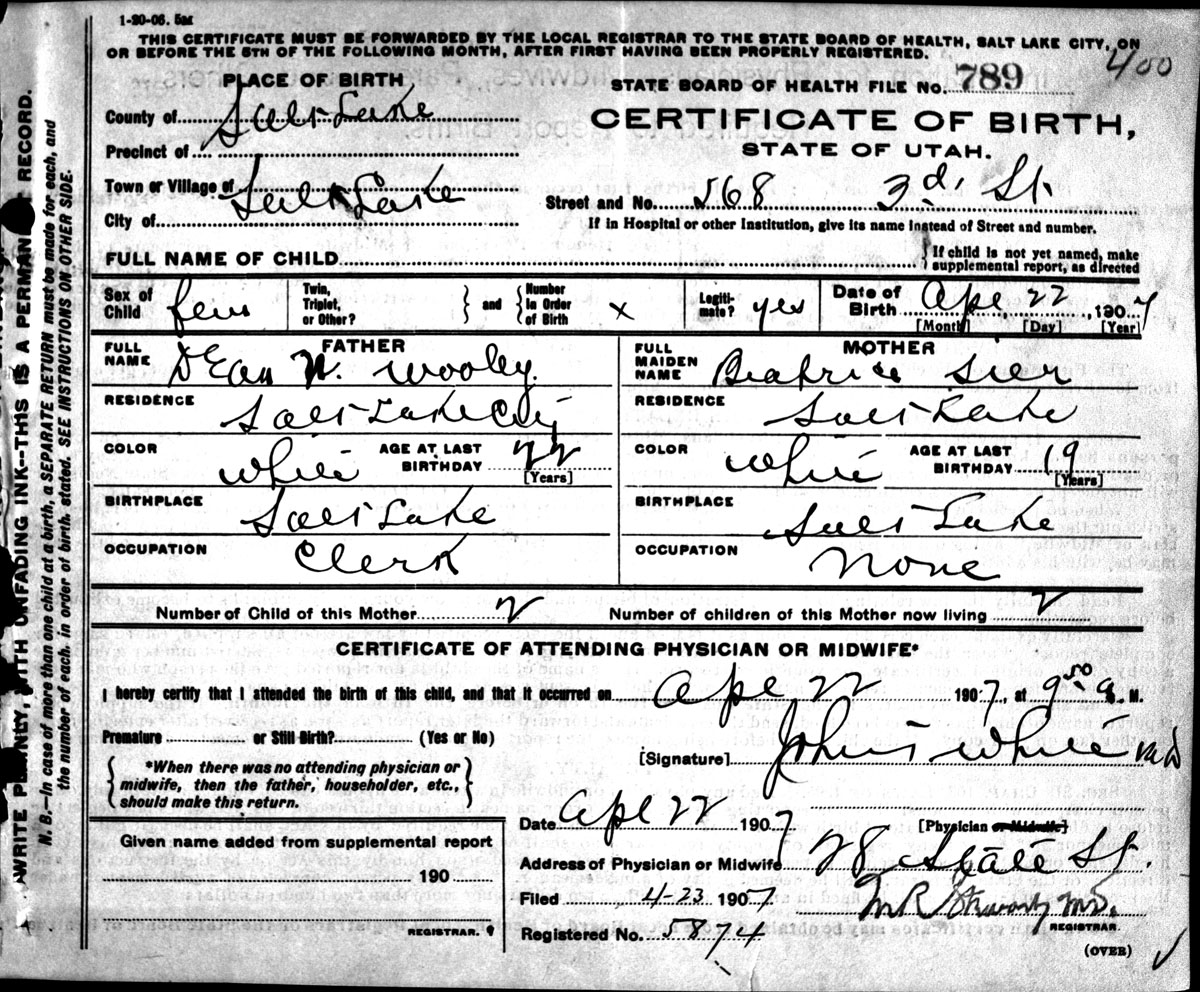 1-20-06. 5M
THIS CERTIFICATE MUST BE FORWARDED BY THE LOCAL REGISTRAR TO THE STATE BOARD OF HEALTH, SALT LAKE CITY, ON
OR BEFORE THE 5TH OF THE FOLLOWING MONTH, AFTER FIRST HAVING BEEN PROPERLY REGISTERED.
400
PLACE OF BIRTH
STATE BOARD OF HEALTH FILE No. 789
County of Salt Lake
CERTIFICATE OF BIRTH,
Precinct of
STATE OF UTAH.
Town or Village of
City of Salt Lake
Street and No. 568 3d. St.
If in Hospital or other Institution, give its name instead of Street and number.
FULL NAME OF CHILD
If child is not yet named, make
supplemental report, as directed
Sex of Child fem
Twin, Triplet, or Other?
and
Number in Order of Birth x
Legiti-mate? yes
Date of Birth Apl 22, 1907
[Month] [Day] [Year]
FATHER
FULL NAME Dean W. Wooley.
RESIDENCE Salt Lake City
COLOR White
AGE AT LAST BIRTHDAY 22 [Years]
BIRTHPLACE Salt Lake
OCCUPATION Clerk
MOTHER
FULL MAIDEN NAME Beatrice
RESIDENCE Salt Lake
COLOR White
AGE AT LAST BIRTHDAY 19 [Years]
BIRTHPLACE Salt Lake
OCCUPATION None
Number of Child of this Mother 2
Number of children of this Mother now living 2
CERTIFICATE OF ATTENDING PHYSICIAN OR MIDWIFE*
I hereby certify that I attended the birth of this child, and that it occurred on Apl 22 1907, at 9 50 a. M.
Premature or Still Birth? (Yes or No)
[Signature] White MD
*When there was no attending physician or
midwife, then the father, householder, etc.,
should make this return.
Date Apl 22 1907
[Physician or Midwife]
Given name added from supplemental report
190
REGISTRAR.
Address of Physician or Midwife 28 State St.
Filed 4-23 1907
M R Stewart, MD.
REGISTRAR.
Registered No. 5874
(OVER)
WRITE PLAINLY, WITH UNFADING INK--THIS IS A PERMANENT RECORD.
N. B.--In case of more than one child at a birth, a SEPARATE RETURN must be made for each, and
the number of each, in order of birth, stated. SEE INSTRUCTIONS ON OTHER SIDE.